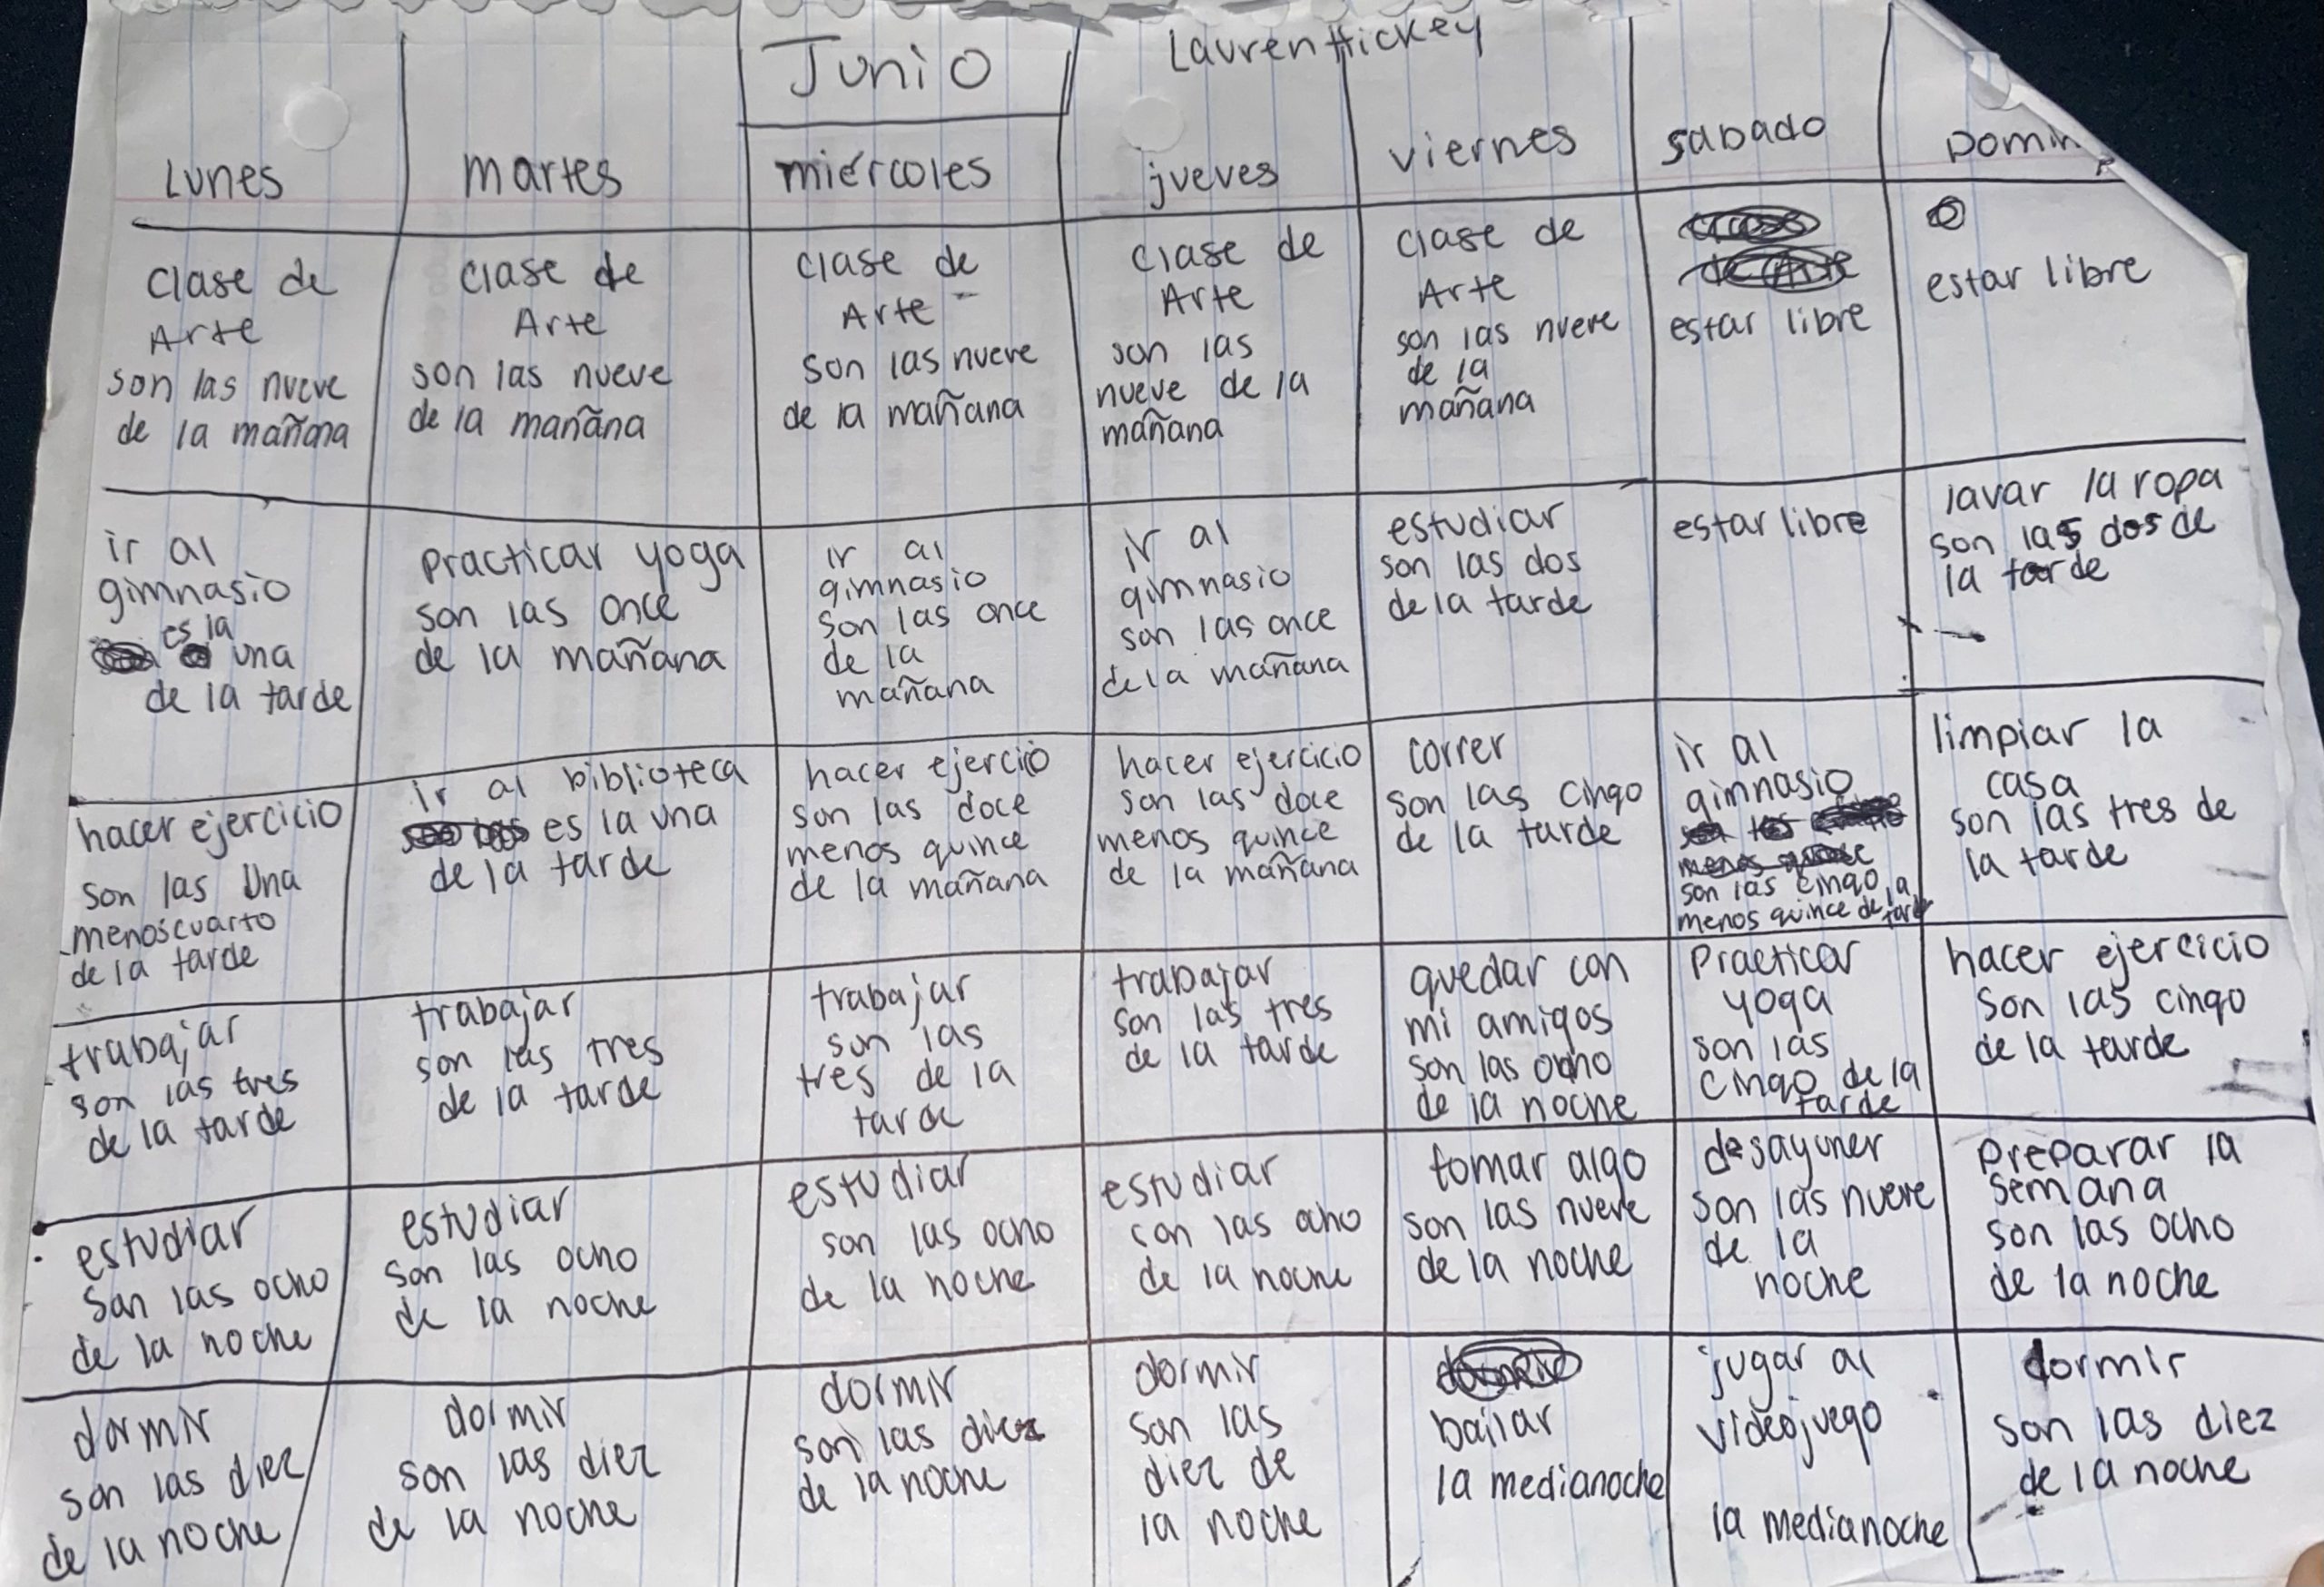 Junio
Lauren Hickey
Lunes
martes
miércoles
jueves
viernes
sabado
Domin
clase de
Arte
son las nueve
de la mañana
clase de
Arte
son las nueve
de la mañana
clase de
Arte
son las nueve
de la mañana
clase de
Arte
son las
nueve de la
mañana
clase de
Arte
son las nueve
de la
mañana
estar libre
estar libre
ir al
gimnasio
es la
una
de la tarde
practicar yoga
son las once
de la mañana
ir al
gimnasio
son las once
de la
mañana
ir al
gimnasio
son las once
de la mañana
estudiar
son las dos
de la tarde
estar libre
lavar la ropa
son las dos de
la tarde
hacer ejercicio
son las una
menos cuarto
de la tarde
ir al biblioteca
es la una
de la tarde
hacer ejercicio
son las doce
menos quince
de la mañana
hacer ejercicio
son las doce
menos quince
de la mañana
correr
son las cinqo
de la tarde
ir al
gimnasio
son las cinqo
menos quince de la
tarde
limpiar la
casa
son las tres de
la tarde
trabajar
son las tres
de la tarde
trabajar
son las tres
de la tarde
trabajar
son las
tres de la
tarde
trabajar
son las tres
de la tarde
quedar con
mi amigos
son las ocho
de la noche
practicar
yoga
son las
cinqo de la
tarde
hacer ejercicio
son las cinqo
de la tarde
estudiar
son las ocho
de la noche
estudiar
son las ocho
de la noche
estudiar
son las ocho
de la noche
estudiar
son las ocho
de la noche
tomar algo
son las nueve
de la noche
desayuner
son las nueve
de la
noche
preparar la
semana
son las ocho
de la noche
dormir
son las diez
de la noche
dormir
son las diez
de la noche
dormir
son las diez
de la noche
dormir
son las
diez de
la noche
bailar
la medianoche
jugar al
videojuego
la medianoche
dormir
son las diez
de la noche